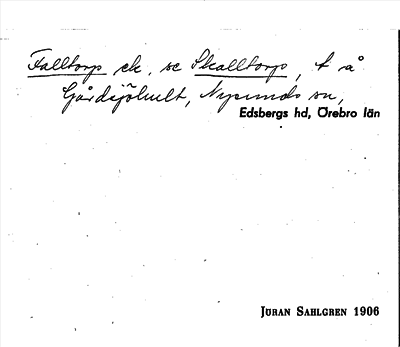 Falltorp ek, se Skalltorp, t å
Gårdsjöhult, Nysunds sn,
Edsbergs hd, Örebro län
JÖRAN SAHLGREN 1906